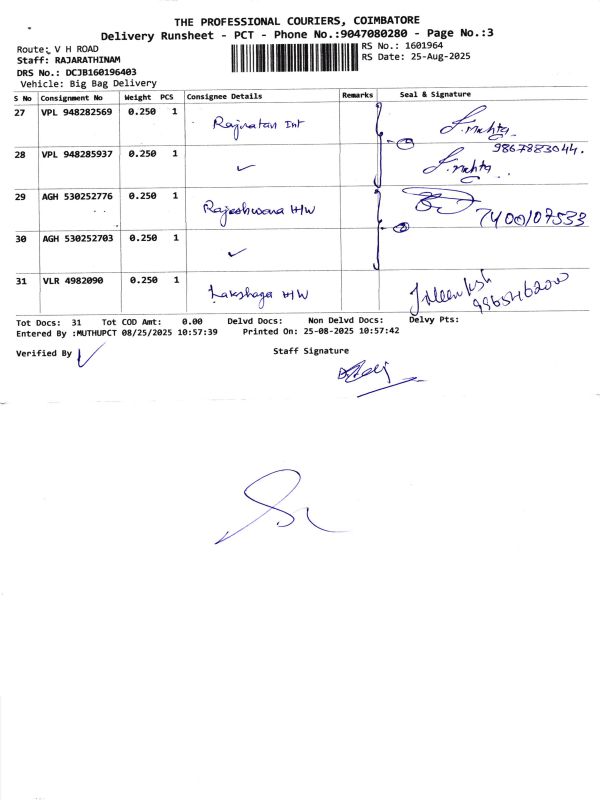 THE PROFESSIONAL COURIERS, COIMBATORE
Delivery Runsheet - PCT - Phone No.:9047080280 - Page No.:3
Route: V H ROAD
RS No.: 1601964
Staff: RAJARATHINAM
RS Date: 25-Aug-2025
DRS No.: DCJB160196403
Vehicle: Big Bag Delivery
S No Consignment No Weight PCS Consignee Details Remarks Seal & Signature
27 VPL 948282569 0.250 1 Rajratan Int
9867883044.
28 VPL 948285937 0.250 1 ✓
29 AGH 530252776 0.250 1 Rajeshwara H/W 7400107533
30 AGH 530252703 0.250 1 ✓
31 VLR 4982090 0.250 1 Lakshaya H/W
Tot Docs: 31 Tot COD Amt: 0.00 Delvd Docs: Non Delvd Docs: Delvy Pts:
Entered By :MUTHUPCT 08/25/2025 10:57:39 Printed On: 25-08-2025 10:57:42
Verified By
Staff Signature